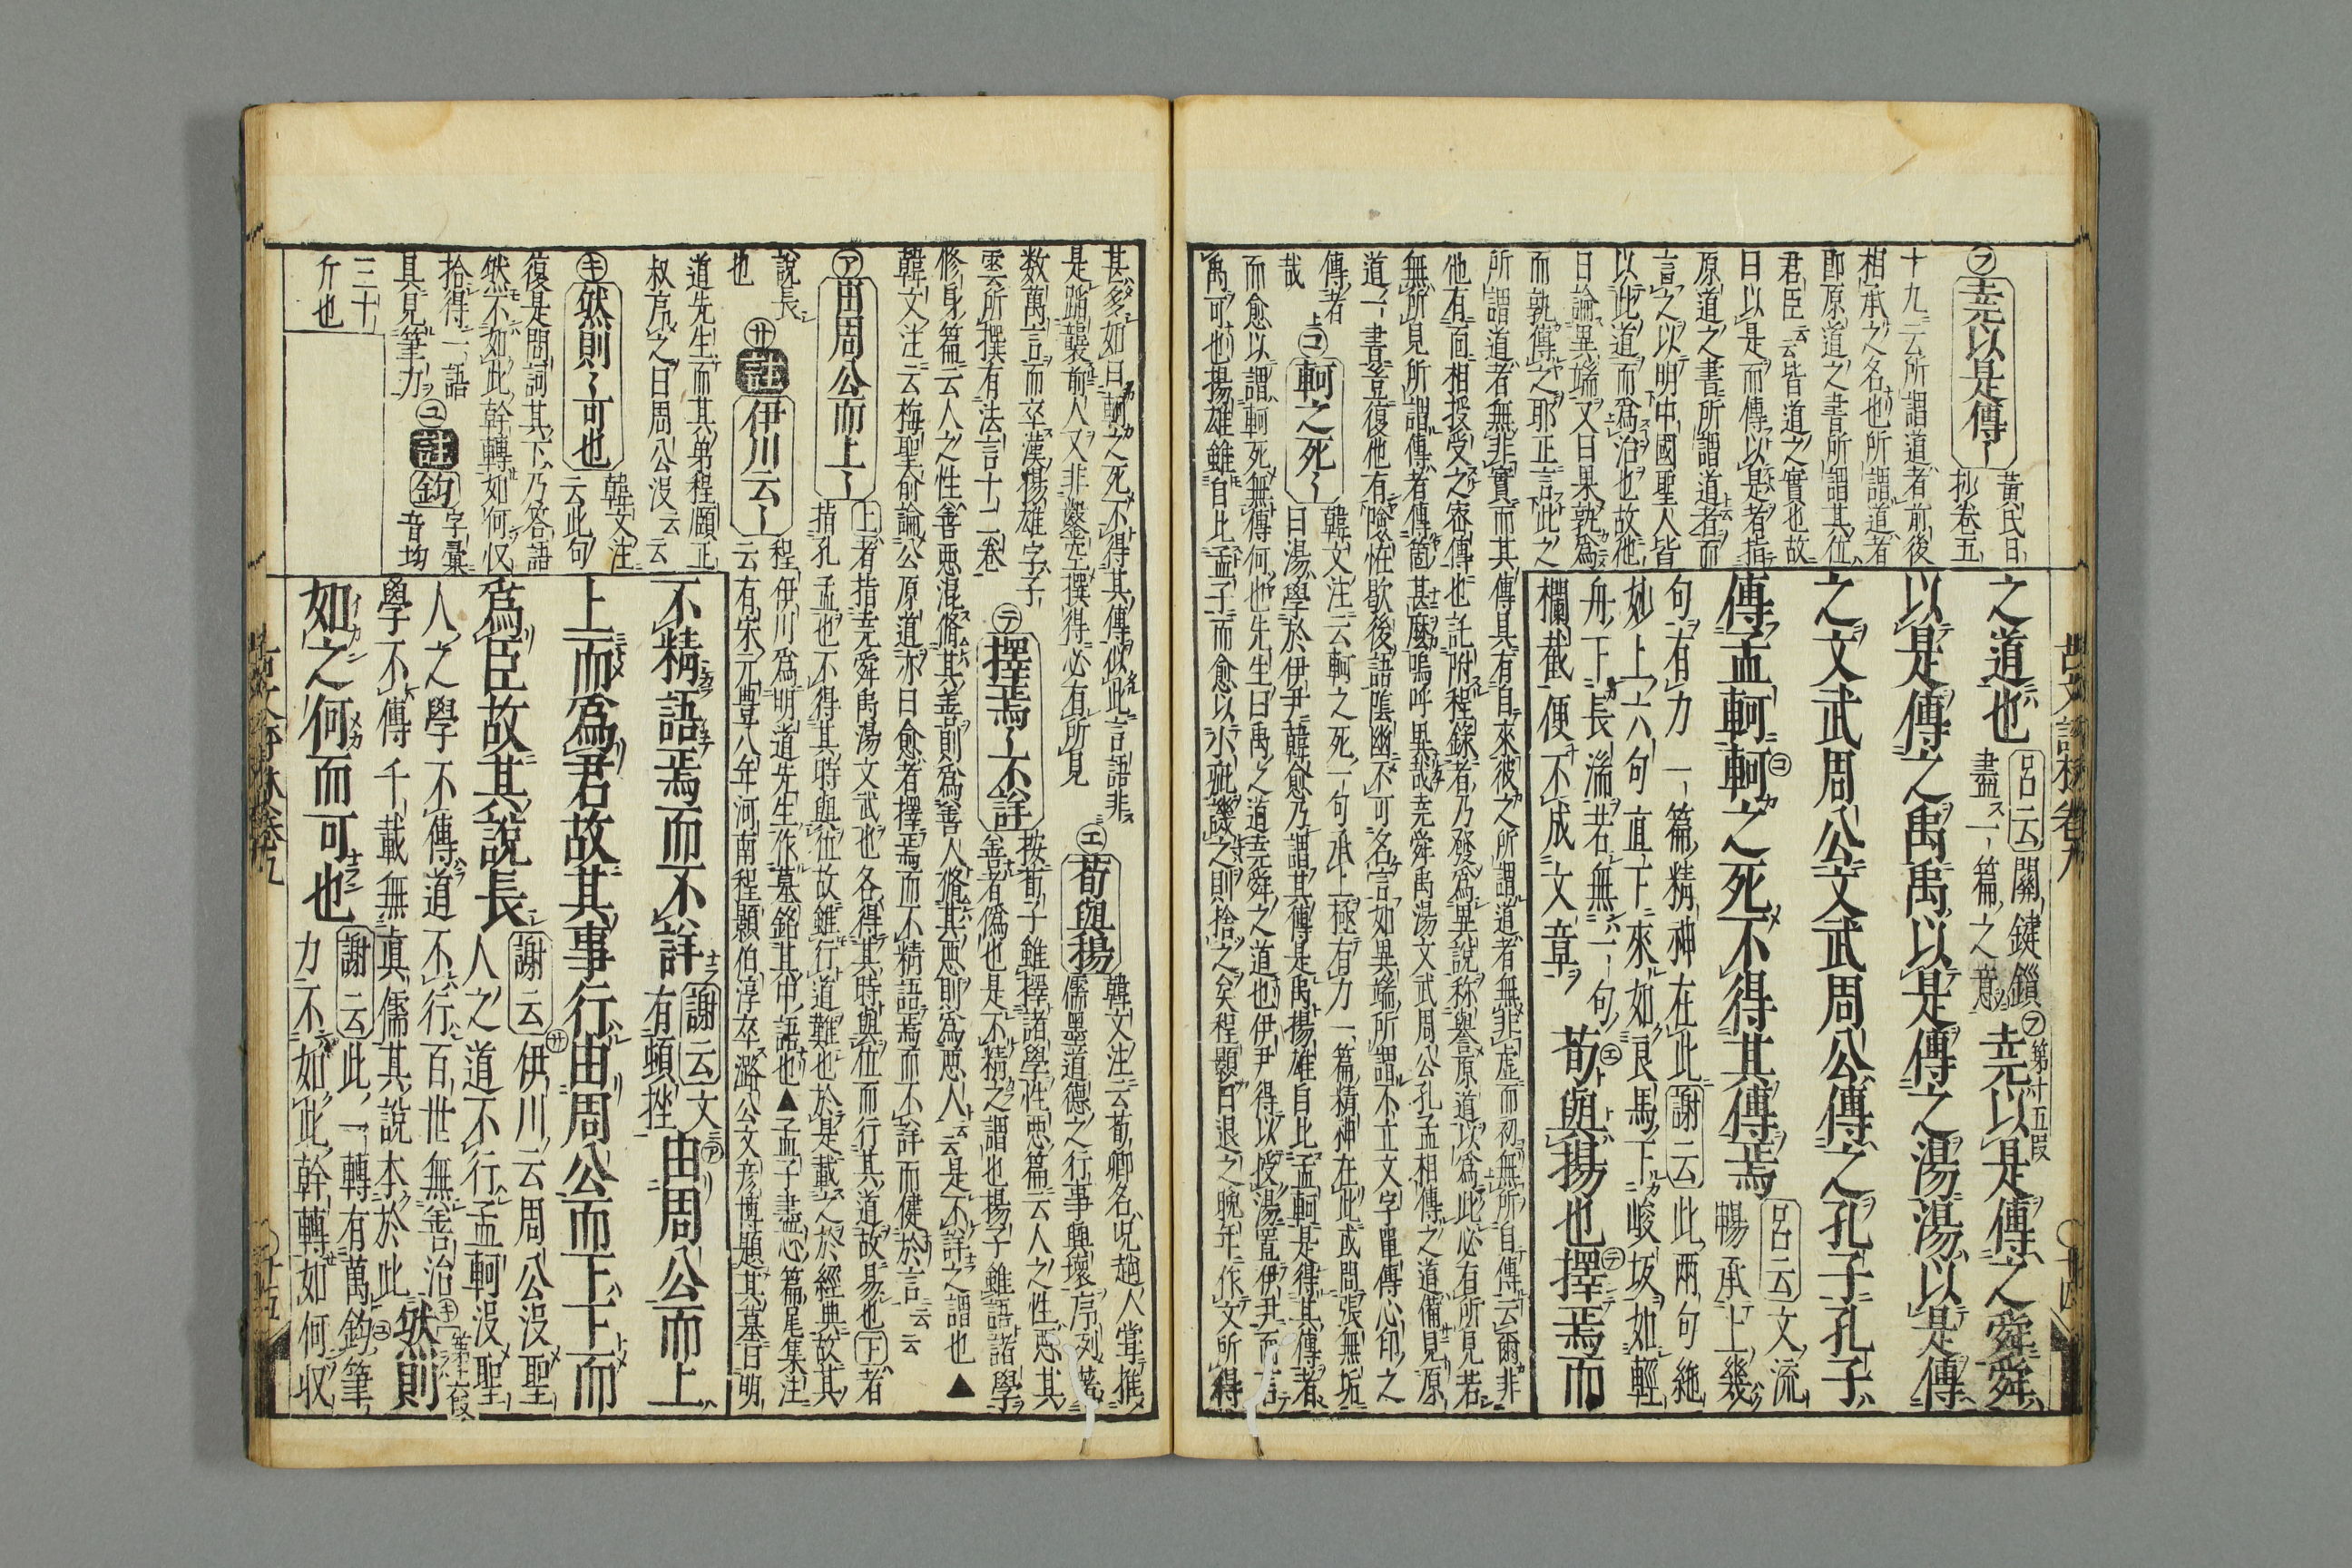 フ 堯以是傳〻 黃氏日
抄卷五
十九云所謂道者前後
相承之名也所謂道者
卽原道之書所謂其位
君臣云云皆道之實也故
曰以是而傳以是者指
原道之書所謂道者而
言之以明中國聖人皆
以此道而爲治也故他
日論異端又曰果孰爲
而孰傳之耶正言此之
所謂道者無非實而其傳具有自來彼之所謂道者無非虛而初無所自傳云爾非
他有面相授受之密傳也託附程錄者乃發爲異說称譽原道以爲此必有所見若
無所見所謂傳者傳箇甚麼嗚呼異哉堯舜禹湯文武周公孔孟相傳之道備見原
道一書豈復他有險恠歇後語陰幽不可名言如異端所謂不立文字單傳心印之
傳者
哉 コ 軻之死〻 韓文注云軻之死一句承上極有力一篇精神在此或問張無垢
曰湯學於伊尹韓愈乃謂其傳是禹揚雄自比孟軻是得其傳者
而愈以謂軻死無傳何也先生曰禹之道堯舜之道也伊尹得以授湯置伊尹而言
禹可也揚雄雖自比孟子而愈以小疵譏之則捨之矣程顥曰退之晩年作文所得
之道也 呂云 關鍵鎖
盡一篇之意 フ 第十五段 堯以是傳之舜舜
以是傳之禹禹以是傳之湯湯以是傳
之文武周公文武周公傳之孔子孔子
傳孟軻軻之死不得其傳焉 呂云 文流
暢承上幾
句有力一篇精神在此 謝云 此兩句絶
妙上六句直下來如良馬下峻坂如輕
舟下長湍若無一句
欄截便不成文章 荀與揚也擇焉而
古文評林卷九 十四
甚多如曰軻之死不得其傳似此言語非
是蹈襲前人又非鑿空撰得必有所見 エ 荀與揚 韓文注云荀卿名況趙人嘗推
儒墨道德之行事興壞序列著
数萬言而卒漢揚雄字子
雲所撰有法言十二卷 テ 擇焉〻不詳 按荀子雖擇諸學性惡篇云人之性惡其
善者僞也是不精之謂也揚子雖語諸學
修身篇云人之性善惡混脩其善則爲善人脩其惡則爲惡人云是不詳之謂也▲
韓文注云梅聖兪論公原道亦曰愈者擇焉而不精語焉而不詳而健於言云云
ア 由周公而上〻 上者指堯舜禹湯文武也各得其時與位而行其道故易也下者
指孔孟也不得其時與位故雖行道難也於是載之於經典故其
說長
也 サ 註 伊川云〻 程伊川爲明道先生作墓銘其中語也▲孟子盡心篇尾集注
云有宋元豐八年河南程顥伯淳卒潞公文彦博題其墓曰明
道先生而其弟程頤正
叔序之曰周公沒云云
キ 然則〻可也 韓文注
云此句
復是問詞其下乃答語
然不如此幹轉如何収
拾得一語
具見筆力 ユ 註 鈞 字彙
音均
三十
斤也
不精語焉而不詳 謝云 文
有頓挫 由周公而上
上而爲君故其事行由周公而下下而
爲臣故其說長 謝云 伊川云周公沒聖
人之道不行孟軻沒聖
人之學不傳道不行百世無善治
學不傳千載無眞儒其說本於此 キ 第十六段 然則
如之何而可也 謝云 此一轉有萬鈞筆
力不如此幹轉如何収
古文評林卷九 十五